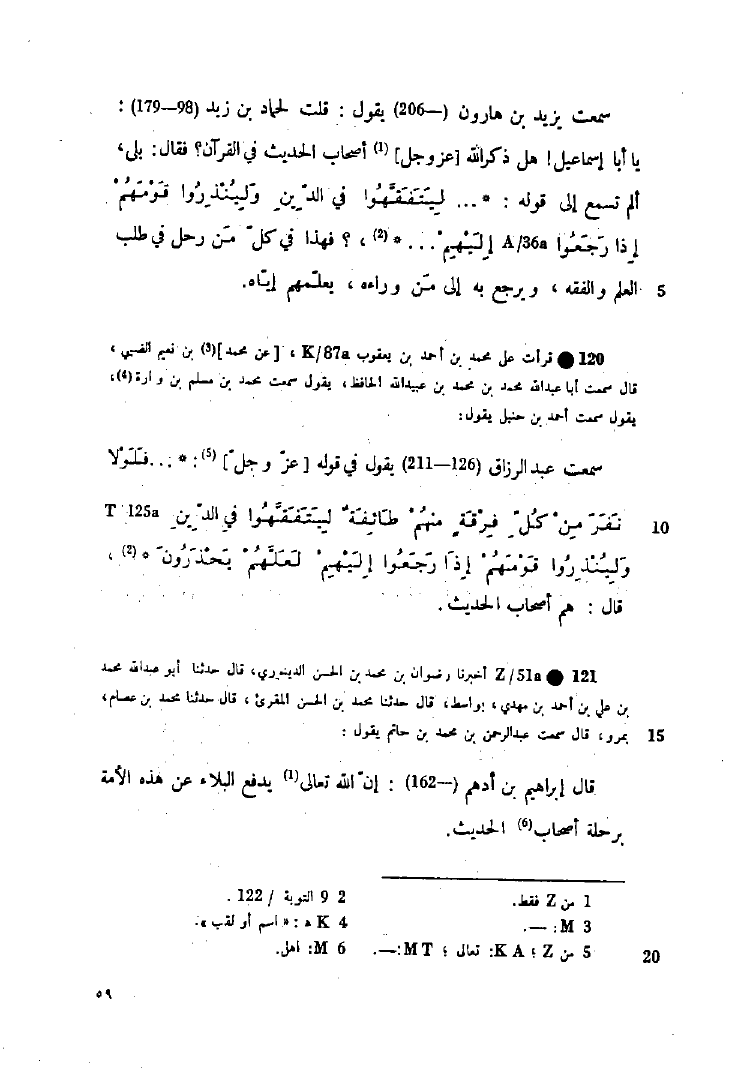 سمعت يزيد بن هارون (—206) يقول : قلت لحماد بن زيد (98—179) :
يا أبا إسماعيل! هل ذكر الله [عز وجل] (1) أصحاب الحديث في القرآن؟ فقال: بلى،
ألم تسمع إلى قوله : * ... لِيَتَفَقَّهُوا في الدِّينِ وَلِيُنْذِرُوا قَوْمَهُمْ
إذا رَجَعُوا A/36a إلَيْهِمْ ... * (2) ، ؟ فهذا في كلّ مَن رحل في طلب
5 العلم والفقه ، ويرجع به إلى مَن وراءه ، يعلّمهم إيّاه.
120 ● قرأت على محمد بن أحمد بن يعقوب K/87a ، [عن محمد](3) بن نعيم الضبي ،
قال سمعت أبا عبدالله محمد بن محمد بن عبيدالله الحافظ، يقول سمعت محمد بن مسلم بن وارة(4)،
يقول سمعت أحمد بن حنبل يقول:
سمعت عبد الرزاق (126—211) يقول في قوله [عزّ وجلّ] (5): * ... فَلَوْلا
10 نَفَرَ مِنْ كُلِّ فِرْقَةٍ مِنْهُمْ طَائِفَةٌ لِيَتَفَقَّهُوا في الدِّينِ T 125a
وَلِيُنْذِرُوا قَوْمَهُمْ إذَا رَجَعُوا إلَيْهِمْ لَعَلَّهُمْ يَحْذَرُونَ * (2) ،
قال : هم أصحاب الحديث.
121 ● Z/51a أخبرنا رضوان بن محمد بن الحسن الدينوري، قال حدثنا أبو عبدالله محمد
بن علي بن أحمد بن مهدي، بواسط، قال حدثنا محمد بن الحسن المقرئ ، قال حدثنا محمد بن عصام،
15 بمرو، قال سمعت عبدالرحمن بن محمد بن حاتم يقول :
قال إبراهيم بن أدهم (—162) : إنّ الله تعالى(1) يدفع البلاء عن هذه الأمة
برحلة أصحاب(6) الحديث.
1 من Z فقط. 2 9 التوبة / 122 .
3 M: —. 4 K ه : « اسم أو لقب ».
20 5 من Z ؛ K A: تعالى ؛ M T:—. 6 M: اهل.
٥٩